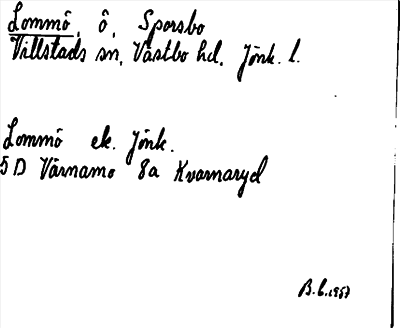 Lommö, ö, Sporsbo
Villstads sn, Västbo hd, Jönk. l.
Lommö ek. Jönk.
5D Värnamo 8a Kvarnaryd
B.C. 1957